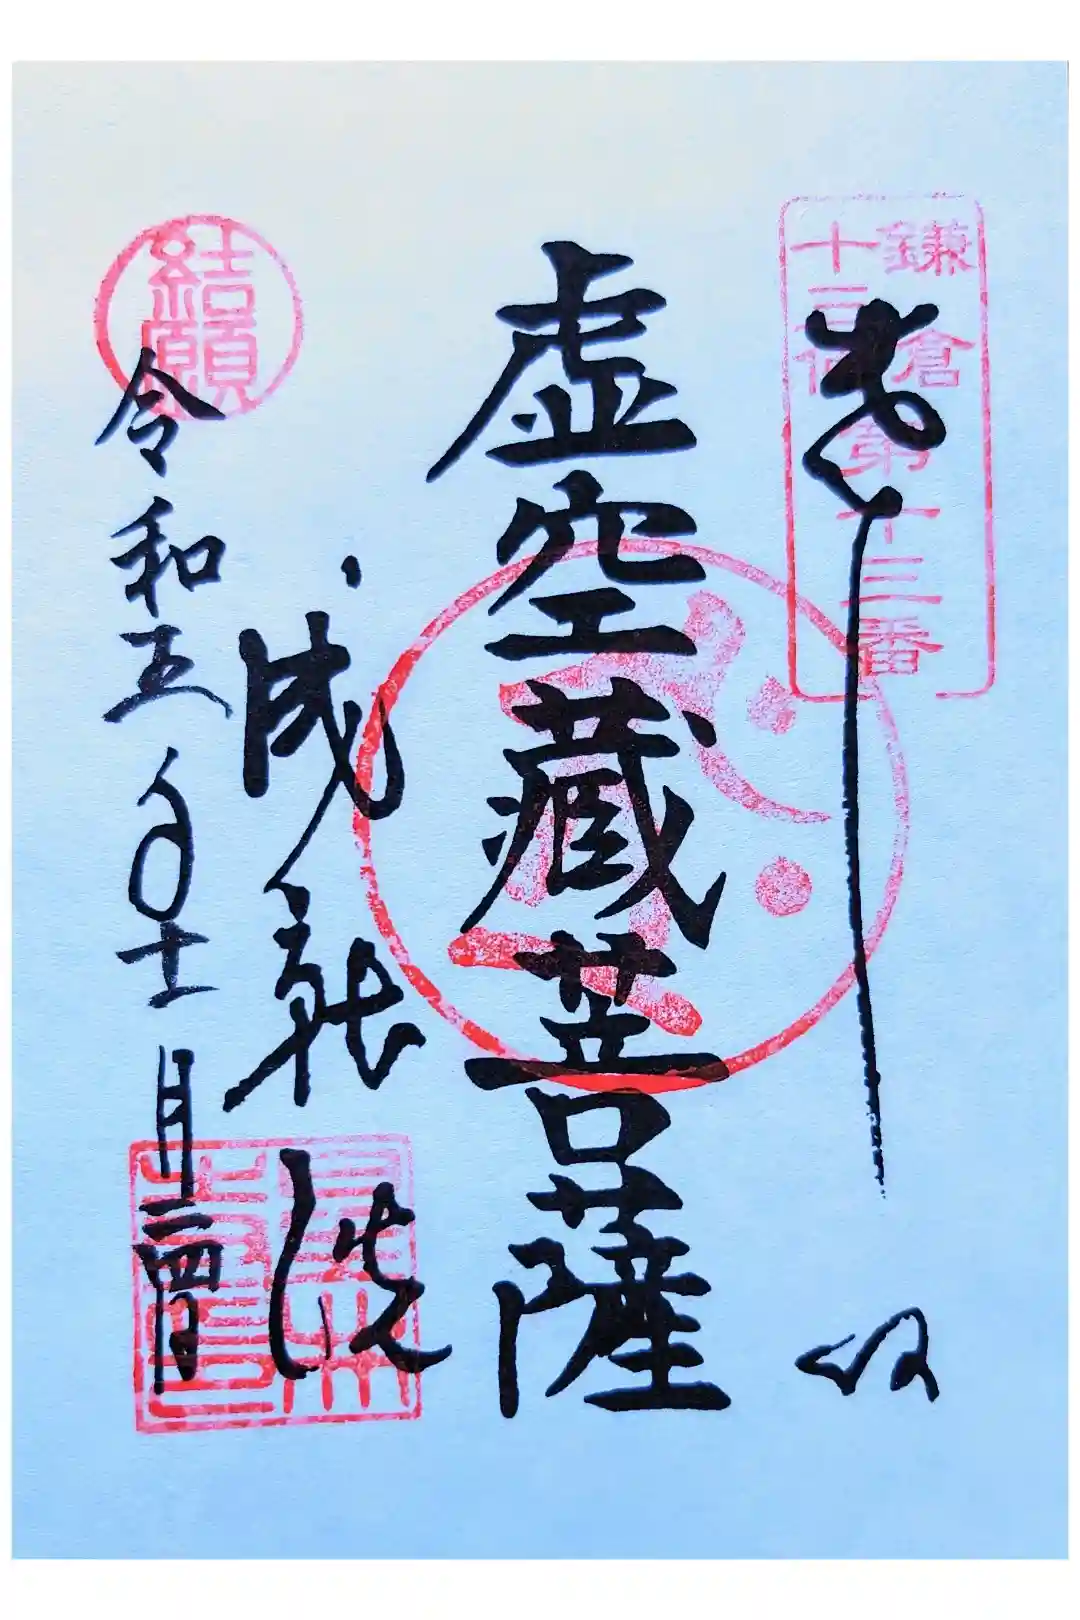 鎌倉
十三佛
第十三番
奉拝
虚空蔵菩薩
成就院
結願
令和五年十一月二四日